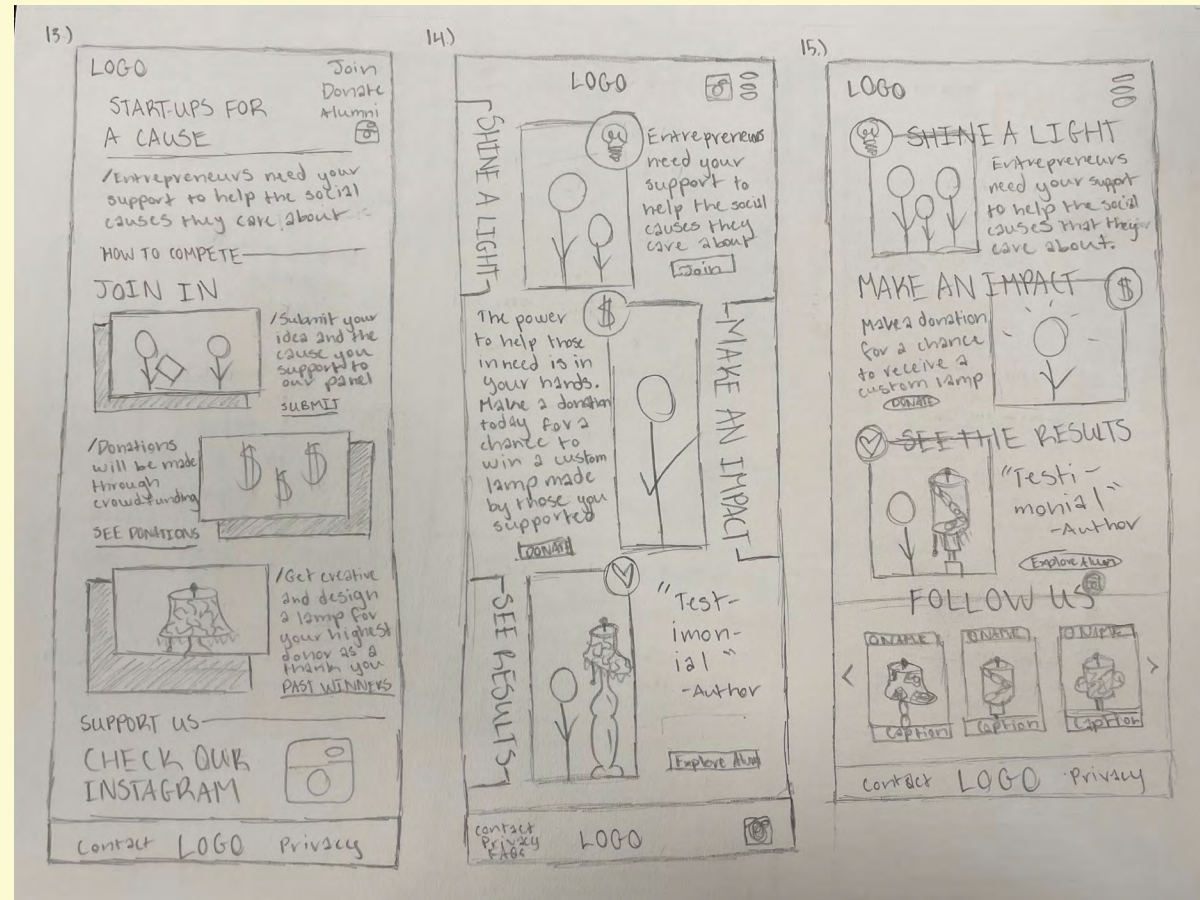 13.)
LOGO
Join
Donate
Alumni
START-UPS FOR
A CAUSE
/Entrepreneurs need your
support to help the social
causes they care about
HOW TO COMPETE
JOIN IN
/Submit your
idea and the
cause you
support to
our panel
SUBMIT
/Donations
will be made
through
crowdfunding
SEE DONATIONS
$ $ $
/Get creative
and design
a lamp for
your highest
donor as a
thank you
PAST WINNERS
SUPPORT US
CHECK OUR
INSTAGRAM
Contact LOGO Privacy
14.)
LOGO
SHINE A LIGHT
Entrepreneurs
need your
support to
help the social
causes they
care about
Join
The power
to help those
in need is in
your hands.
Make a donation
today for a
chance to
win a custom
lamp made
by those you
supported
DONATE
$
MAKE AN IMPACT
SEE RESULTS
"Test-
imon-
ial"
-Author
Explore Alum
contact
Privacy
FAQs
LOGO
15.)
LOGO
SHINE A LIGHT
Entrepreneurs
need your support
to help the social
causes that they
care about.
MAKE AN IMPACT
$
Make a donation
for a chance
to receive a
custom lamp
DONATE
SEE THE RESULTS
"Testi-
monial"
-Author
Explore Alum
FOLLOW US
@NAME @NAME @NAME
Caption Caption Caption
Contact LOGO Privacy